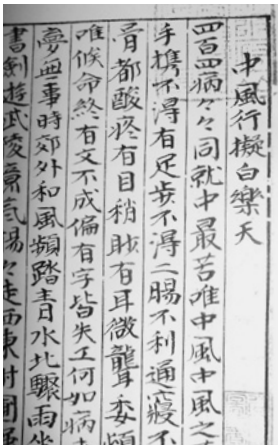 中風行擬白樂天
四百四病々々同就中最苦唯中風中風之
手攜不得有足步不得二腸不利通寢不
骨都酸疼有目稍眊有耳微聾委頓
唯候命終有文不成偏有字皆失工何如病
夢無事時郊外和風頻踏青水北驟雨
書劍遊武凌意氣湯々走西東